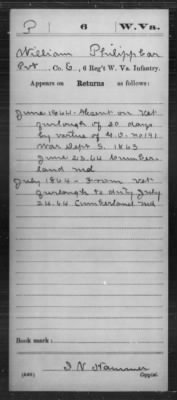 P 6 W. Va.
William Philippear
Pvt, Co. C, 6 Reg't W. Va. Infantry.
Appears on Returns as follows:
June 1864 - Absent on Vet
furlough of 30 days
by virtue of G.O. No 191
War Dept S. 1863
June 23.64 Cumber-
land Md
July 1864 - From Vet
furlough to duty July
24.64 Cumberland Md
Book mark:
I N Hammer
Copyist.